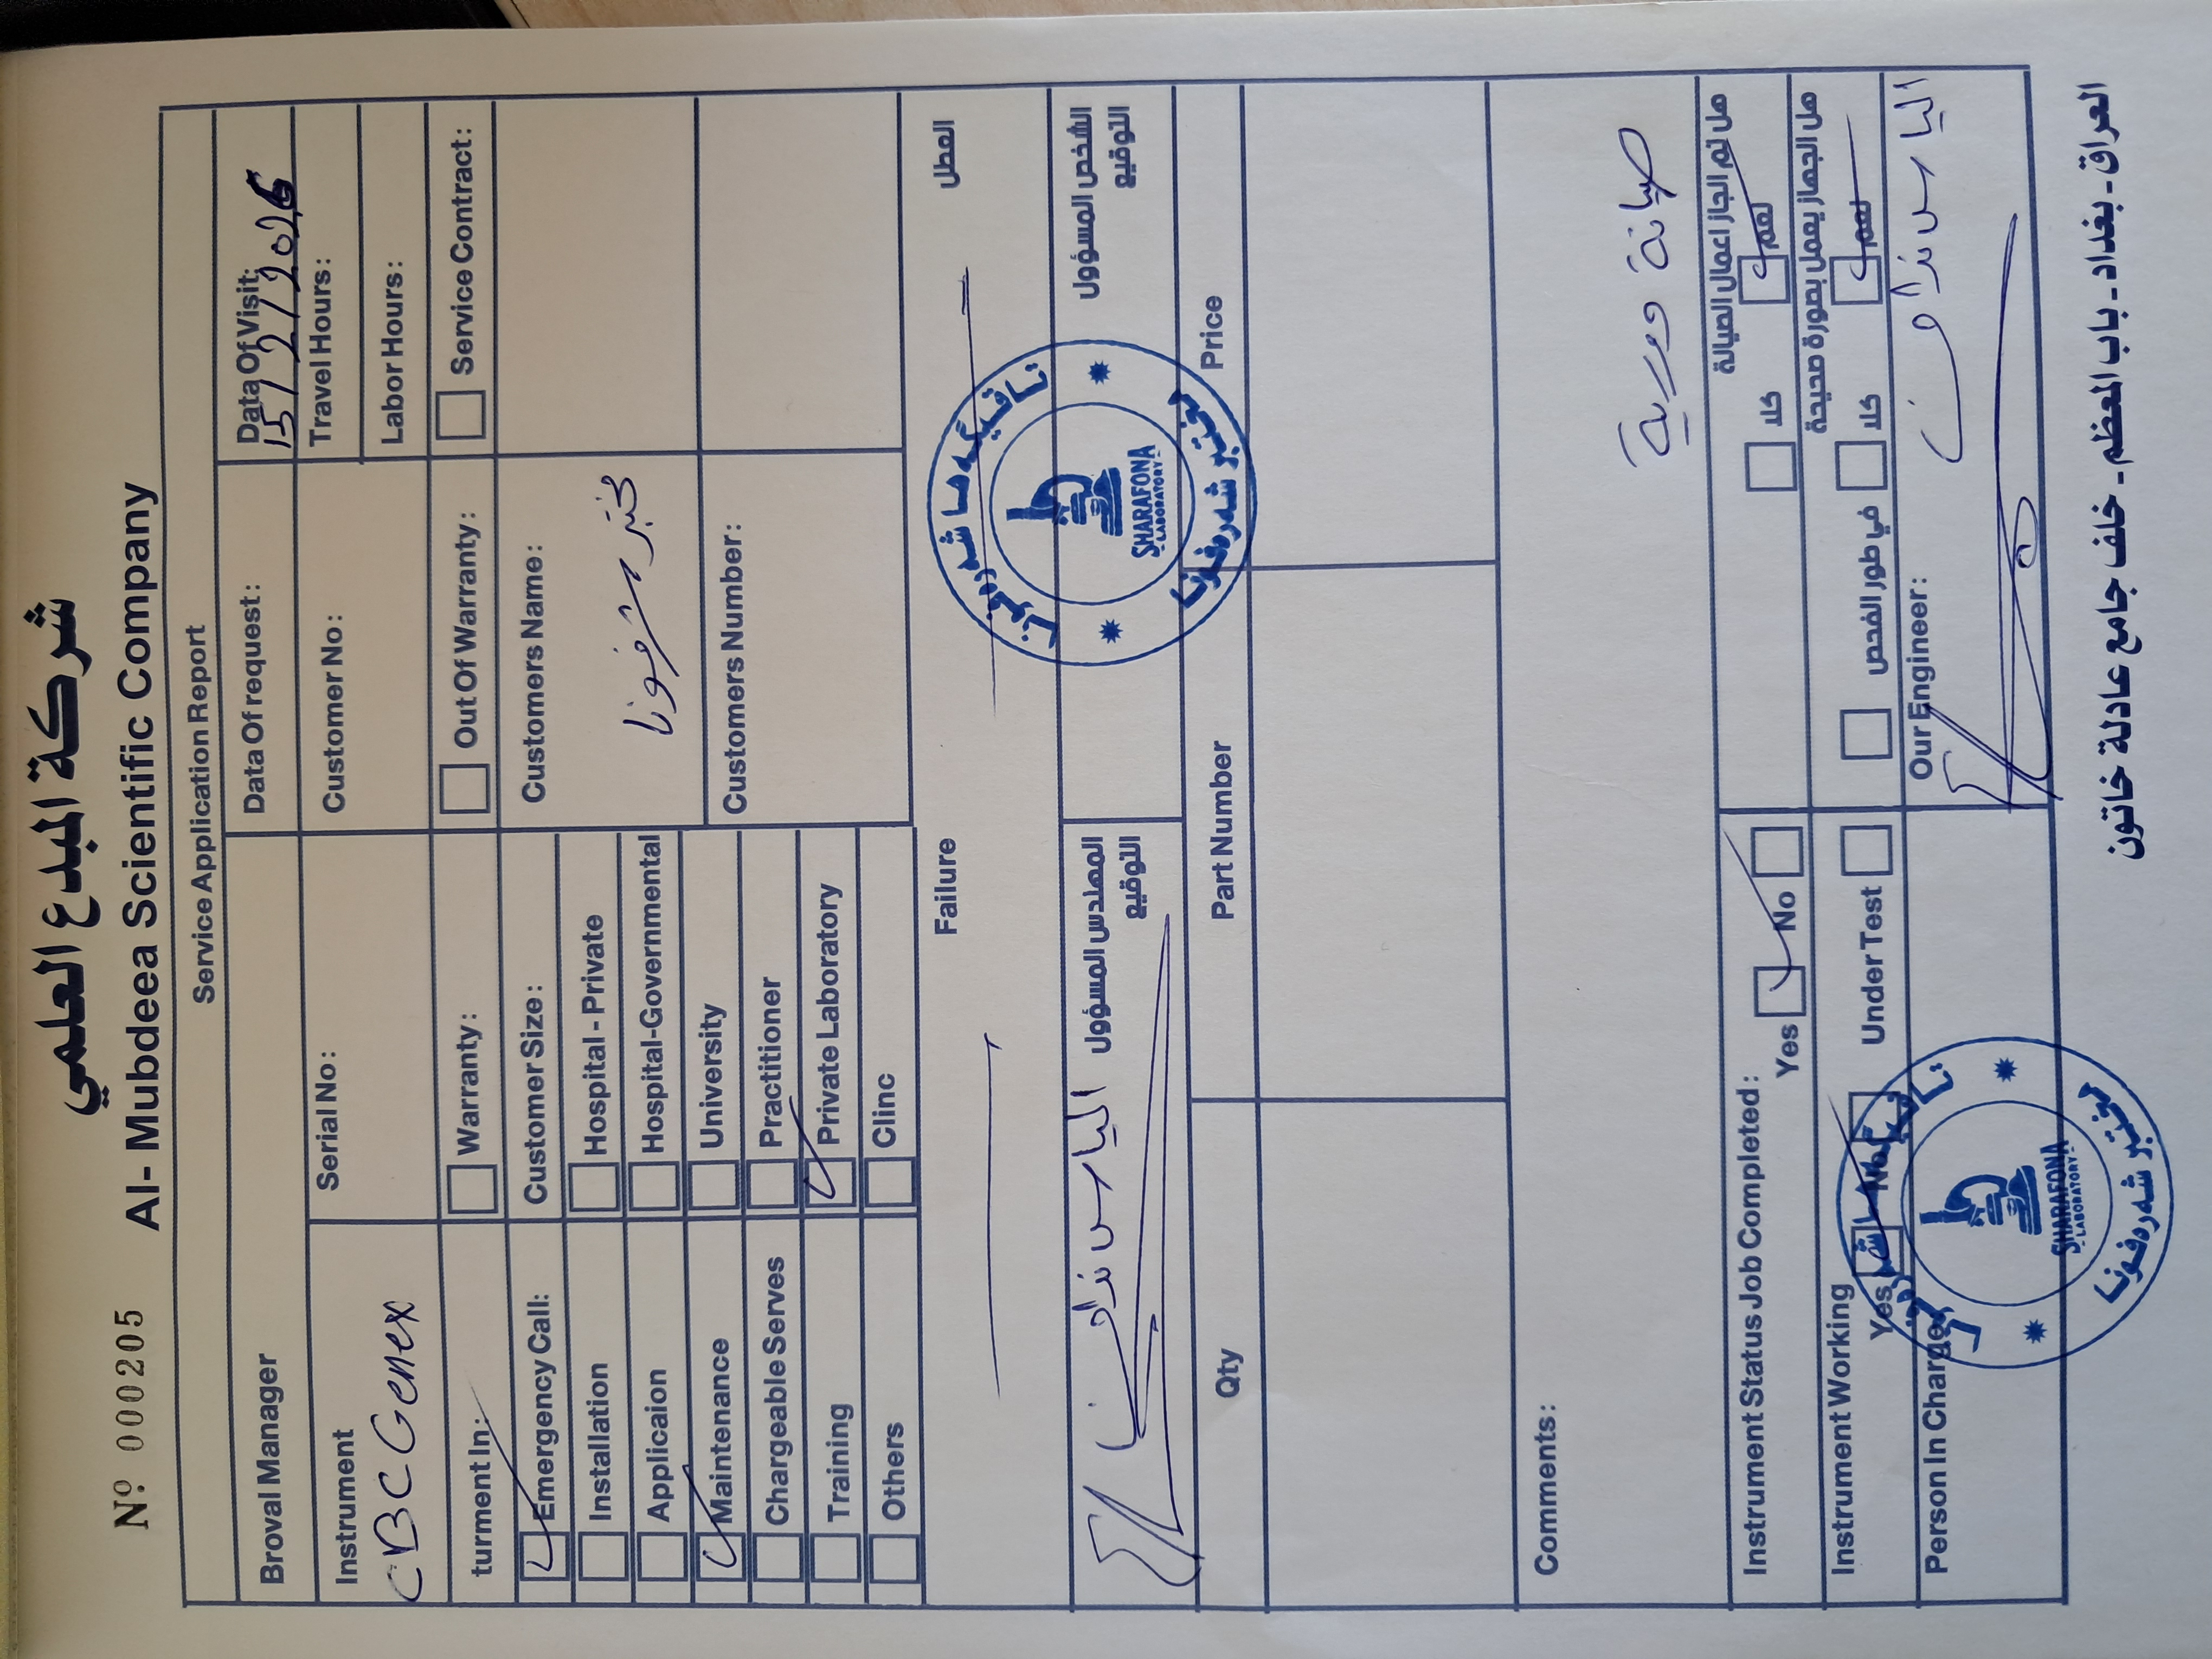 شركة المبدع العلمي
Nº 000205 Al- Mubdeea Scientific Company
Service Application Report
Broval Manager
Data Of request :
Data Of Visit:
15/2/2026
Instrument
CBC Genex
Serial No:
Customer No :
Travel Hours :
Labor Hours :
turment In:
Warranty :
Out Of Warranty :
Service Contract :
Emergency Call:
Installation
Applicaion
Maintenance
Chargeable Serves
Training
Others
Customer Size :
Hospital - Private
Hospital-Governmental
University
Practitioner
Private Laboratory
Clinc
Customers Name :
مختبر شرفونا
Customers Number :
Failure
العطل
المهندس المسؤول
التوقيع
الشخص المسؤول
التوقيع
تاقيگەها شەرەفونا
SHARAFONA
LABORATORY
مختبر شەرەفونا
Qty
Part Number
Price
Comments :
صيانة دورية
Instrument Status Job Completed :
Yes
No
هل تم انجاز اعمال الصيانة
نعم
كلا
Instrument Working
Yes
No
Under Test
هل الجهاز يعمل بصورة صحيحة
نعم
كلا
في طور الفحص
Person In Charge
Our Engineer :
تاقيگەها شەرەفونا
SHARAFONA
LABORATORY
مختبر شەرەفونا
العراق - بغداد - باب المعظم - خلف جامع عادلة خاتون